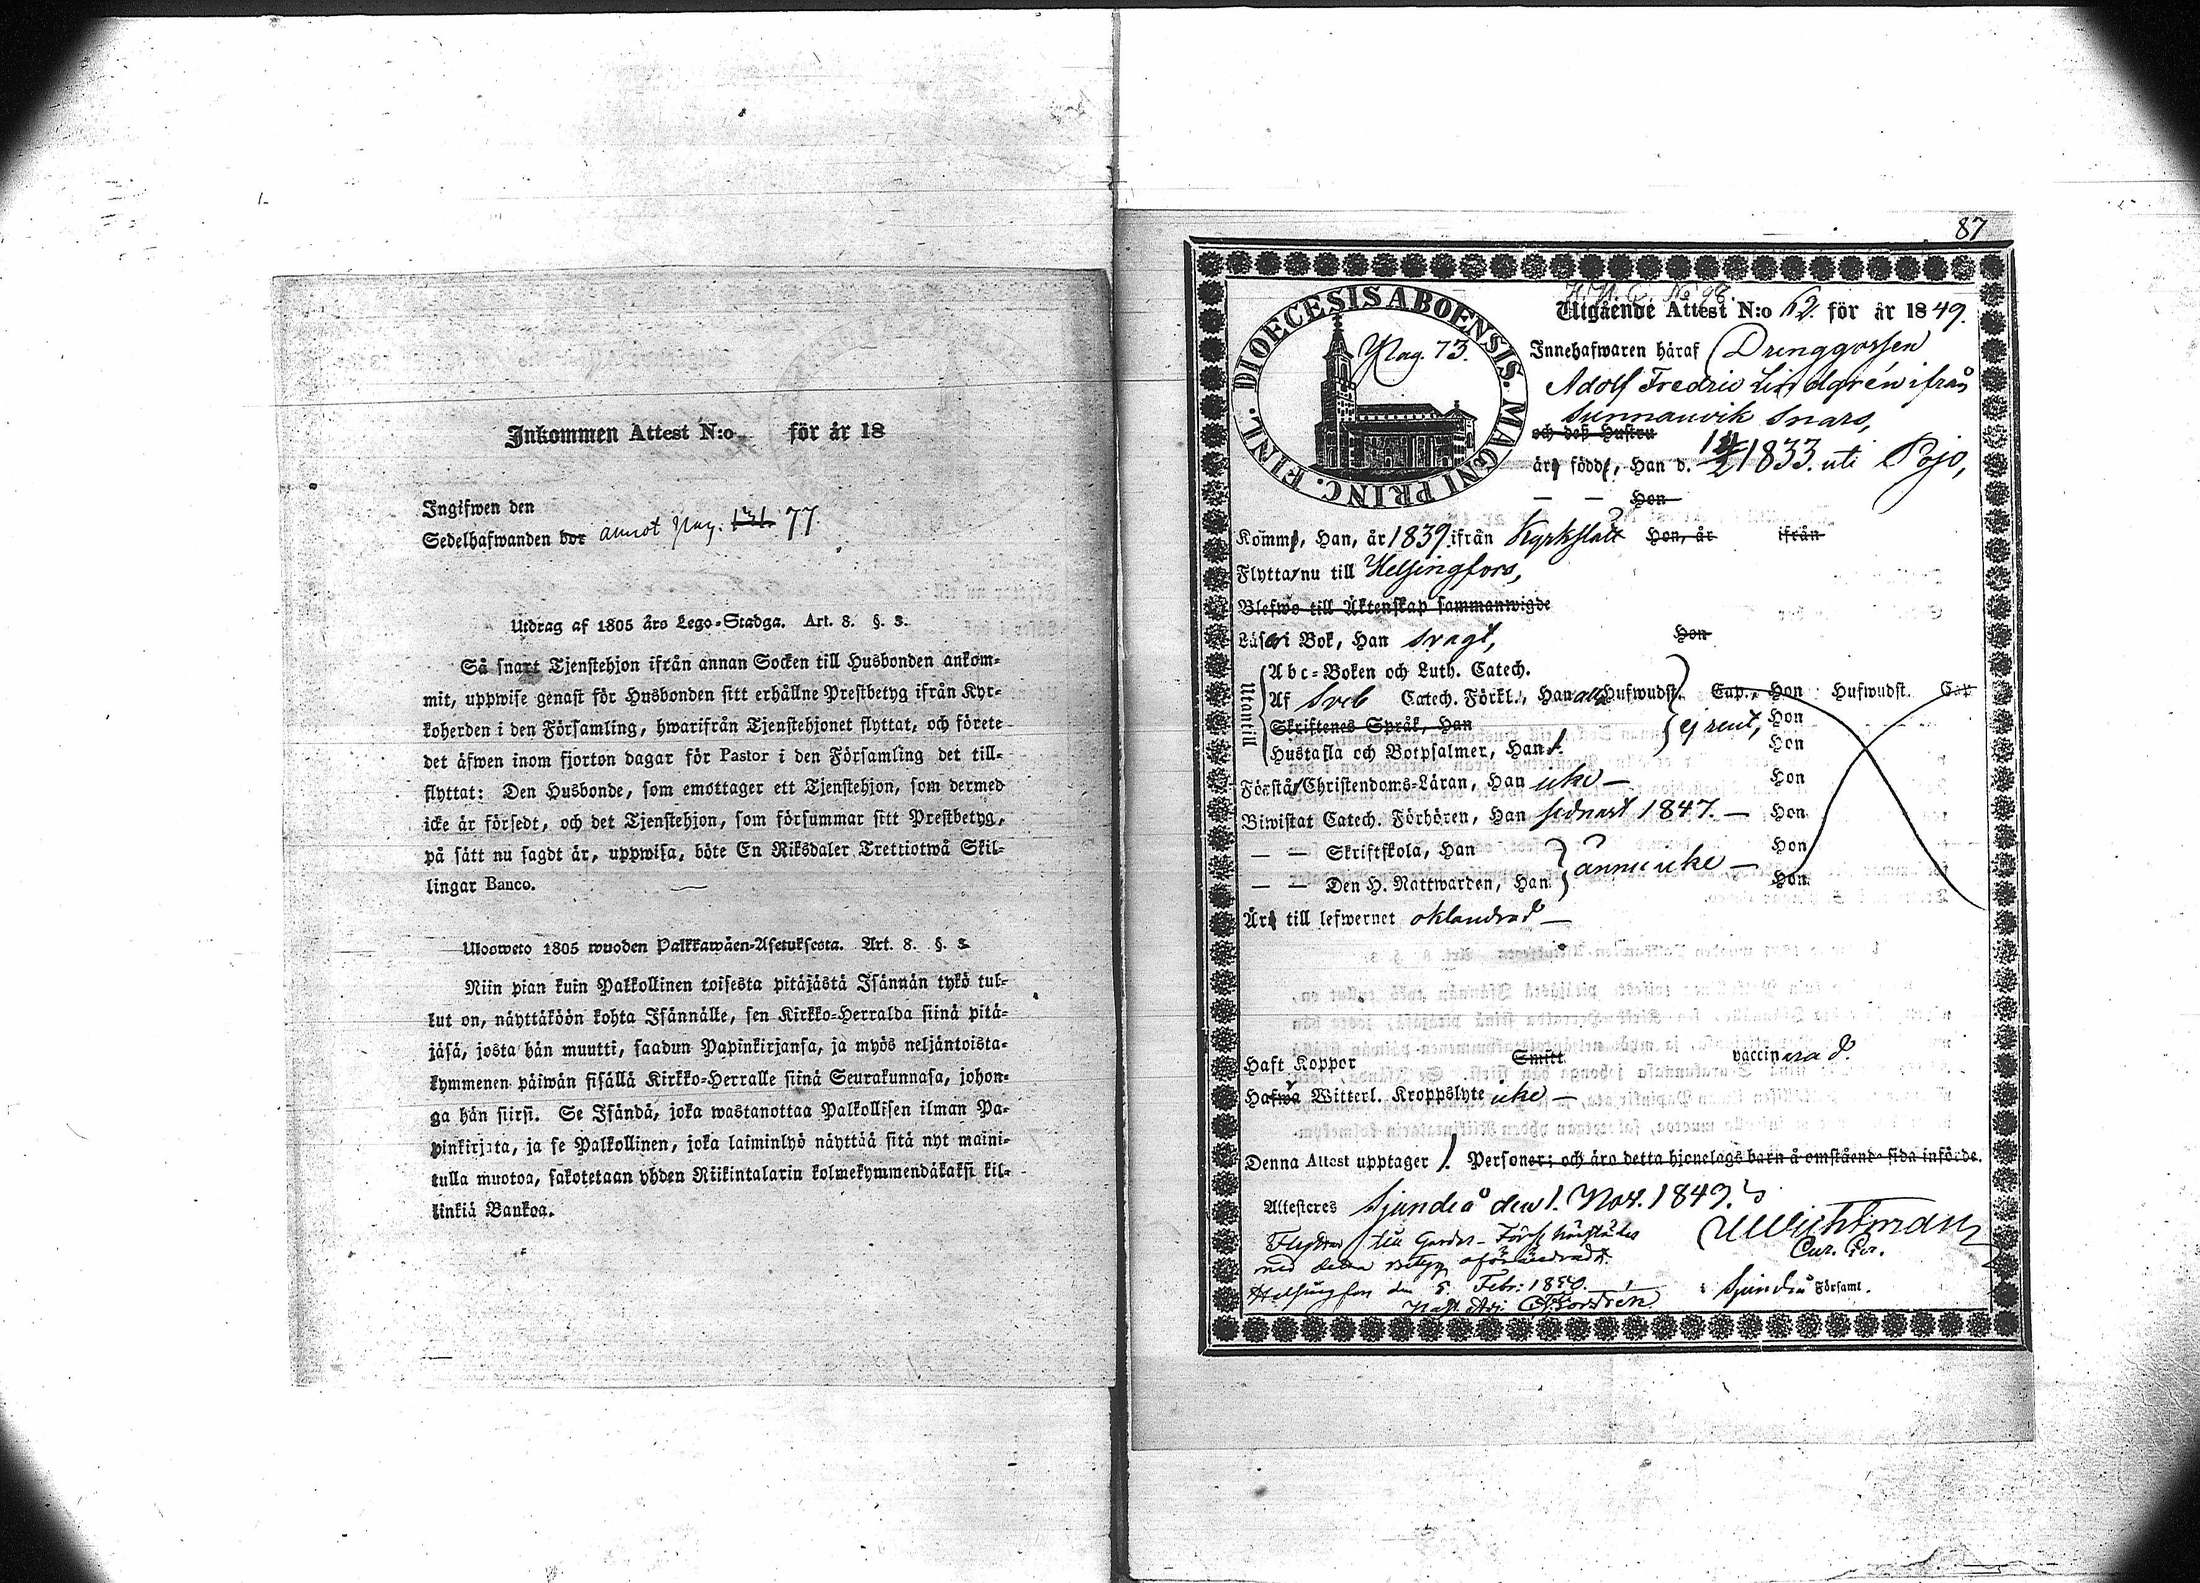 Inkommen Attest N:o för år 18
Ingifwen den
Sedelhafwanden bor annot pag. 131. 77.
Utdrag af 1805 års Lego-Stadga. Art. 8. §. 3.
Så snart Tjenstehjon ifrån annan Socken till Husbonden ankom-
mit, uppwise genast för Husbonden sitt erhållne Prestbetyg ifrån Kyr-
koherden i den Församling, hwarifrån Tjenstehjonet flyttat, och förete
det äfwen inom fjorton dagar för Pastor i den Församling det till-
flyttat: Den Husbonde, som emottager ett Tjenstehjon, som dermed
icke är försedt, och det Tjenstehjon, som försummar sitt Prestbetyg,
på sätt nu sagdt är, uppwisa, böte En Riksdaler Trettiotwå Skil-
lingar Banco.
Ulosweto 1805 wuoden Palkkawäen-Asetuksesta. Art. 8. §. 3.
Niin pian kuin Palkollinen toisesta pitäjästä Isännän tykö tul-
lut on, näyttäköön kohta Isännälle, sen Kirkko-Herralda siinä pitä-
jäsä, josta hän muutti, saadun Papinkirjansa, ja myös neljäntoista-
kymmenen päiwän sisällä Kirkko-Herralle siinä Seurakunnasa, johon-
ga hän siirsi. Se Isändä, joka wastanottaa Palkollisen ilman Pa-
pinkirjata, ja se Palkollinen, joka laiminlyö näyttää sitä nyt maini-
tulla muotoa, sakotetaan yhden Riikintalarin kolmekymmendäkaksi kil-
linkiä Bankoa.
87
DIOECESIS ABOENSIS. MAGNI PRINC. FINL.
Pag. 73.
Utgående Attest N:o 62. för år 1849.
Innehafwaren häraf Drenggossen
Adolf Fredric Lindgrén ifrån
Sunnanvik Snars,
och deß Hustru
äro född, Han d. 1833. uti Pojo,
— — Hon
Komm, Han, år 1839. ifrån Kyrkslätt Hon, år ifrån
Flytta nu till Helsingfors,
Blefwo till Äktenskap sammanwigde
Läser i Bok, Han svagt, Hon
Utantill
Abc-Boken och Luth. Catech.
Af Sveb Catech. Förkl., Han alla Hufwudst. Cap., Hon Hufwudst. Cap
Skriftenes Språk, Han ej rent, Hon
Hustafla och Botpsalmer, Han Hon
Förstår Christendoms-Läran, Han icke — Hon
Biwistat Catech. Förhören, Han sednast 1847. — Hon
— — Skriftskola, Han Hon
— — Den H. Nattwarden, Han ännu icke — Hon
Är till lefwernet oklandrad —
Haft Koppor Smitt vaccinerad.
Hafwa Witterl. Kroppslyte icke —
Denna Attest upptager 1. Personer; och äro detta hjonelags barn å omstående sida införde.
Attesteres Sjundeå den 1. Nov. 1849.
Flyttar till Gardes-Förs. härstädes
med detta betyg oförändradt.
Helsingfors den 5. Febr. 1850.
Cur. Pr.
i Sjundeå Församl.